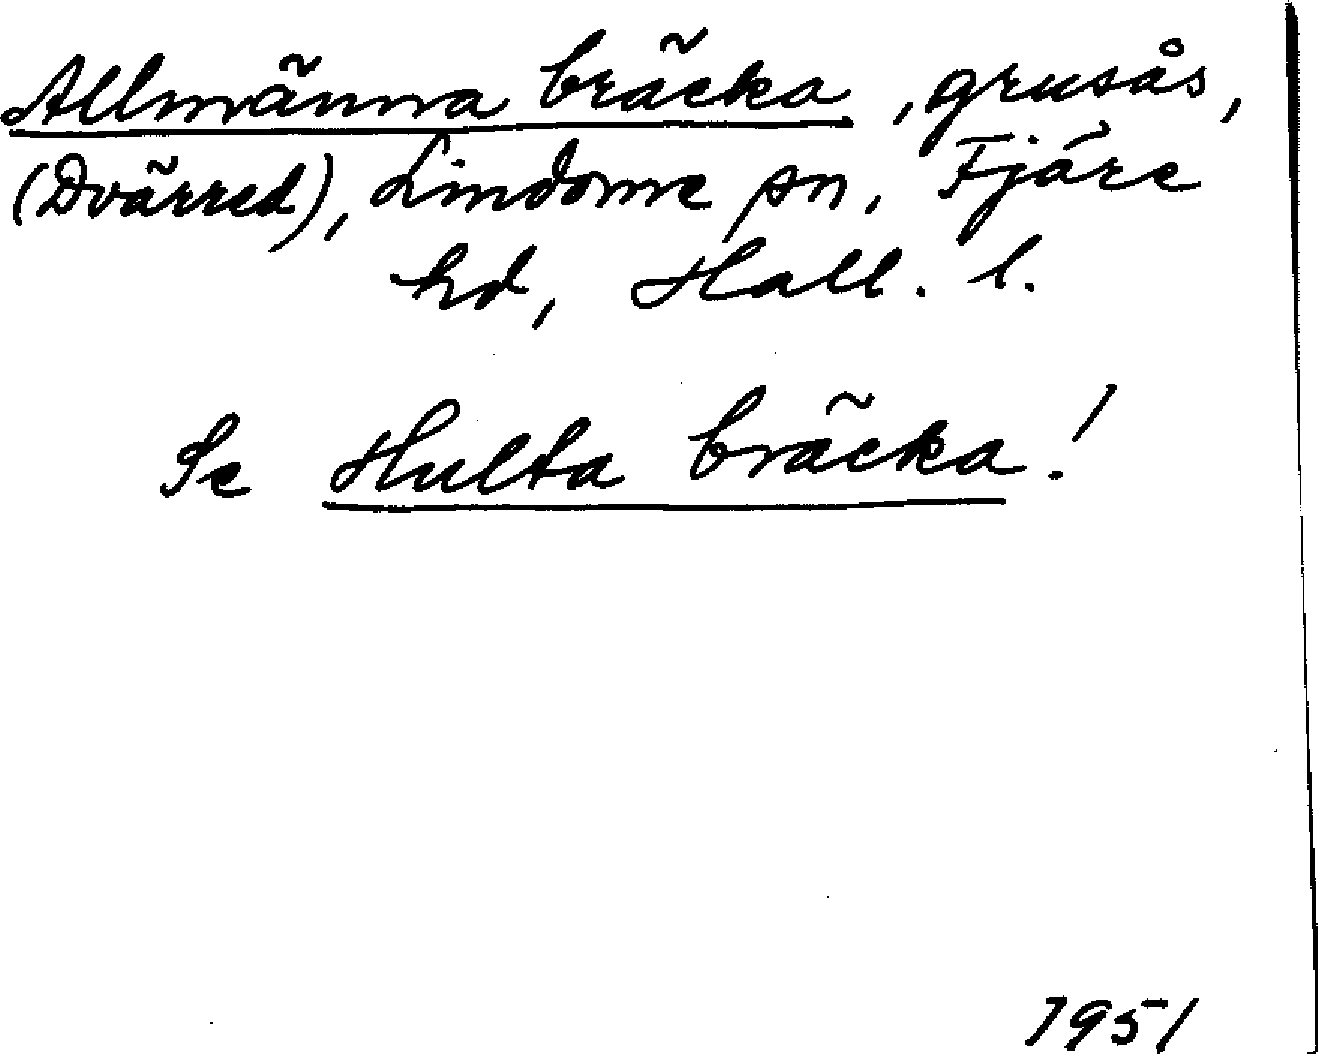 Allmänna bräcka, grusås,
(Dvärred), Lindome sn, Fjäre
hd, Hall. l.
Se Hulta bräcka!
1951